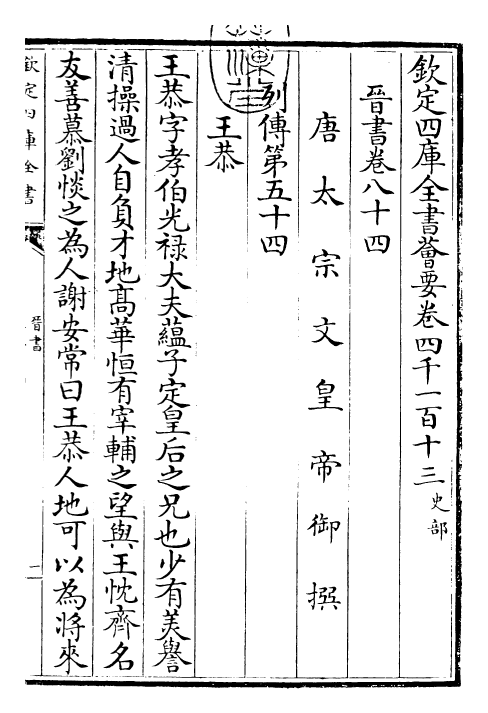 欽定四庫全書薈要卷四千一百十三 史部
晉書卷八十四
唐太宗文皇帝御撰
列傳第五十四
王恭
王恭字孝伯光祿大夫蘊子定皇后之兄也少有美譽
清操過人自負才地髙華恒有宰輔之望與王忱齊名
友善慕劉惔之為人謝安常曰王恭人地可以為將來
欽定四庫全書
晉書
一